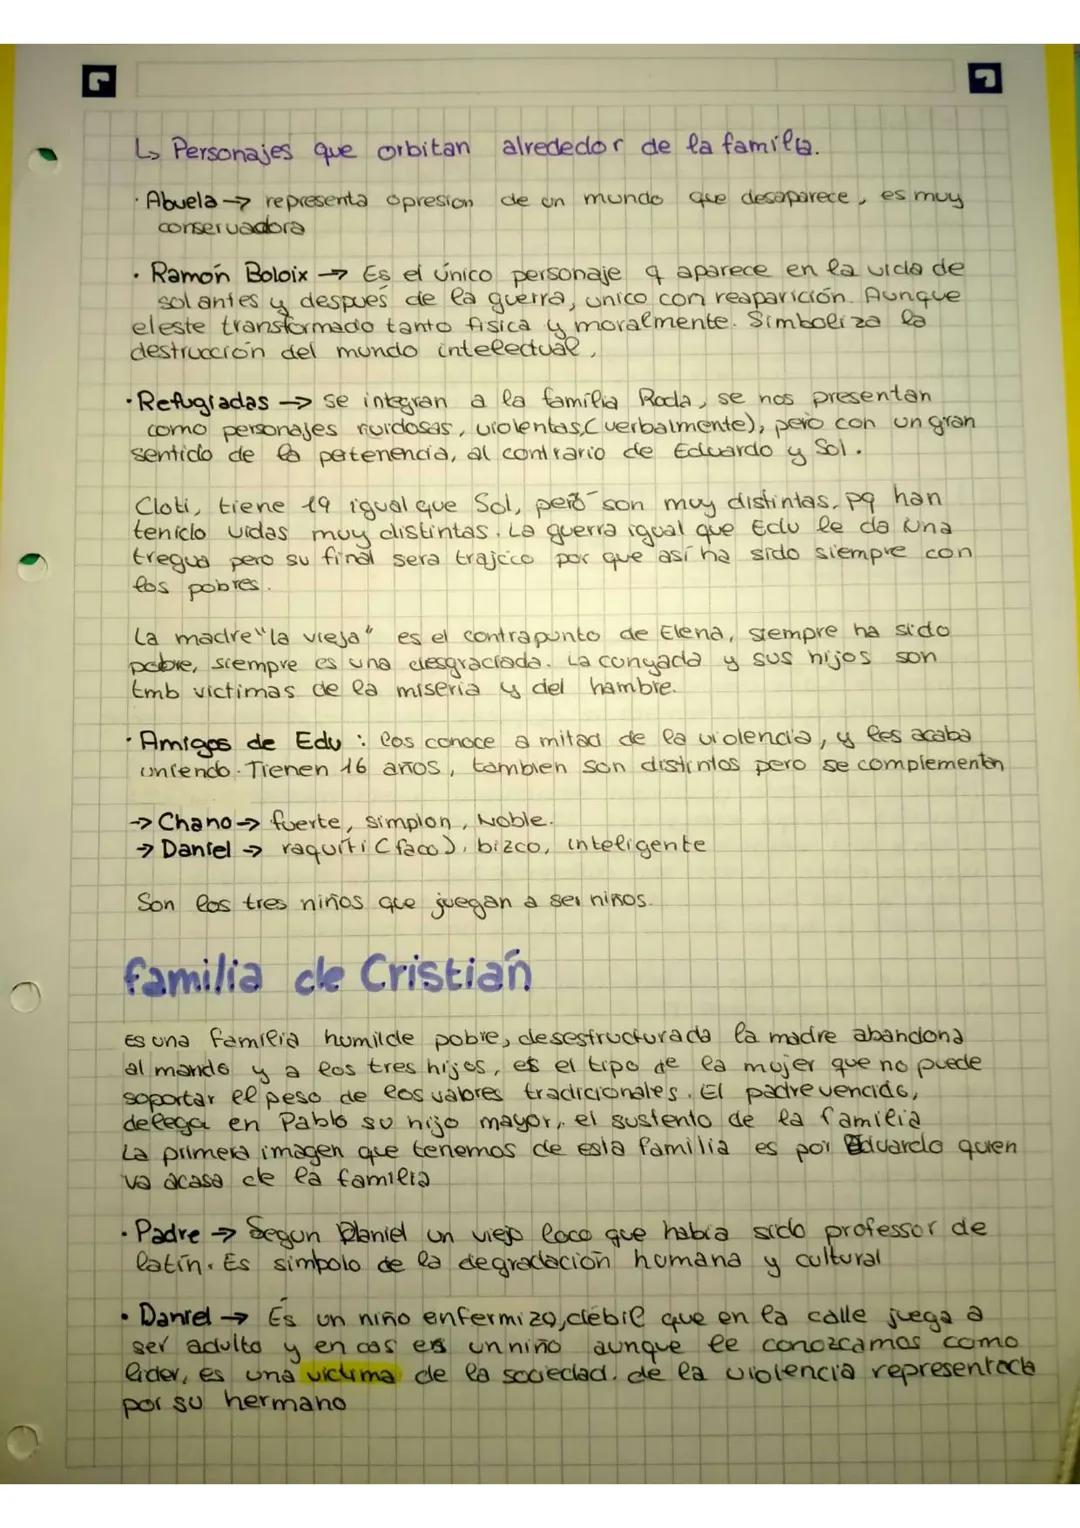 ↳ Personajes que orbitan alrededor de la familia.
· Abuela → representa opresion de un mundo que desaparece, es muy
conservadora
· Ramón Boloix → Es el único personaje q aparece en la vida de
sol antes y después de la guerra, unico con reaparición. Aunque
el este transformado tanto fisica y moralmente. Simboliza la
destrucción del mundo intelectual,
· Refugiadas → se integran a la familia Roda, se nos presentan
como personajes ruidosas, violentas,(verbalmente), pero con un gran
sentido de la petenencia, al contrario de Eduardo y Sol.
Cloti, tiene 19 igual que Sol, pero son muy distintas, pq han
tenido vidas muy distintas. La guerra igual que Edu le da una
tregua pero su final sera trajico por que así ha sido siempre con
los pobres.
La madre "la vieja" es el contrapunto de Elena, siempre ha sido
pobre, siempre es una desgraciada. La cunyada y sus hijos son
tmb victimas de la miseria y del hambre.
· Amigos de Edu : los conoce a mitad de la violencia, y les acaba
uniendo. Tienen 16 años, tambien son distintos pero se complementan
→ Chano → fuerte, simplon, Noble.
→ Daniel → raquiti (faco), bizco, inteligente
Son los tres niños que juegan a ser niños.
familia de Cristian
Es una familia humilde pobre, desestructurada la madre abandona
al marido y a los tres hijos, es el tipo de la mujer que no puede
soportar el peso de los valores tradicionales. El padre vencido,
delega en Pablo su hijo mayor, el sustento de la familia
La primera imagen que tenemos de esta familia es por Eduardo quien
va acasa de la familia
· Padre → Segun Daniel un viejo loco que habia sido professor de
latín. Es simbolo de la degradación humana y cultural
· Daniel → Es un niño enfermizo, débil que en la calle juega a
ser adulto y en cas es un niño aunque le conozcamos como
lider, es una victima de la sociedad. de la violencia representada
por su hermano